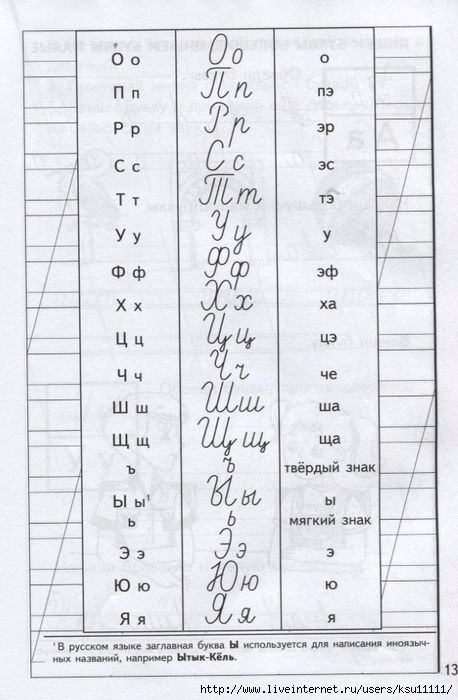 О о Оо о
П п Пп пэ
Р р Рр эр
С с Сс эс
Т т Тт тэ
У у Уу у
Ф ф Фф эф
Х х Хх ха
Ц ц Цц цэ
Ч ч Чч че
Ш ш Шш ша
Щ щ Щщ ща
ъ ъ твёрдый знак
Ы ы¹ Ыы ы
ь ь мягкий знак
Э э Ээ э
Ю ю Юю ю
Я я Яя я
¹ В русском языке заглавная буква Ы используется для написания иноязыч-
ных названий, например Ытык-Кёль.
13
http://www.liveinternet.ru/users/ksu11111/